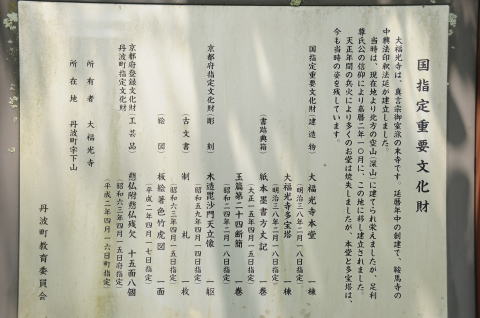 国指定重要文化財
大福光寺は、真言宗御室派の末寺です。延暦年中の創建で、鞍馬寺の
中興法印釈法延が建立しました。
当時は、現在地より北方の空山(深山)に建てられ栄えましたが、足利
尊氏公の信仰により嘉暦二年一〇月に、この地に移し建立されました。
天正年間の兵火により多くのお堂は焼失しましたが、本堂と多宝塔は、
今も当時の姿を残しています。
国指定重要文化財(建造物) 大福光寺本堂 一棟
(明治三八年二月一八日指定)
大福光寺多宝塔 一棟
(明治三八年二月一八日指定)
(書跡典籍) 紙本墨書方丈記 一巻
(大正一五年四月一五日指定)
玉篇第二十四断簡 一巻
(昭和二四年二月一八日指定)
京都府指定文化財(彫刻) 木造毘沙門天立像 一躯
(昭和五九年四月一四日指定)
(古文書) 制札 一枚
(昭和六三年四月一五日指定)
(絵図) 板絵著色竹虎図 一面
(平成二年四月一七日指定)
京都府登録文化財(工芸品) 懸仏附懸仏残欠 十五面八個
(昭和六三年四月一五日府指定)
丹波町指定文化財
(平成二年四月一六日町指定)
所有者 大福光寺
所在地 丹波町字下山
丹波町教育委員会